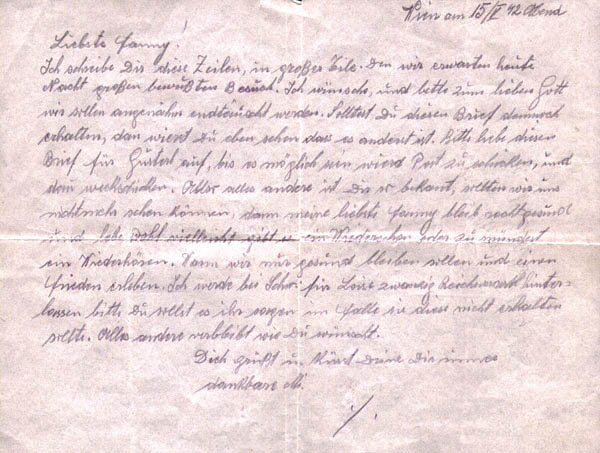 Wien am 15/I 42 Abend
Liebste Fanny!
Ich schreibe Dir diese Zeilen, in großer Eile. Den wir erwarten heute
Nacht großen bewußten Besuch. Ich wünsche, und bitte zum lieben Gott
wir sollen angenehm endteuscht werden. Solltest Du diesen Brief dennoch
erhalten, dan wierst Du eben sehen dass es anderst ist. Bitte hebe diesen
Brief für Gusterl auf, bis es möglich sein wierd Post zu schicken, und
dem wechschicken. Alles andere ist Dir so bekant, sollten wir uns
nichtmehr sehen können, dann meine liebste Fanny bleib gesund
und lebe wohl vielleicht gibt es ein Wiedersehen oder zu mündest
ein Wiederhören. Wann wir nur gesund bleiben sollen und einen
Frieden erleben. Ich werde bei für zwanzig Reichsmark hinter-
lassen bitte Du sollst es ihr sagen im falle sie diese nicht erhalten
sollte. Alles andere verbleibt wie Du wünscht.
Dich grüßt u. küsst Deine Dir immer
dankbare M.